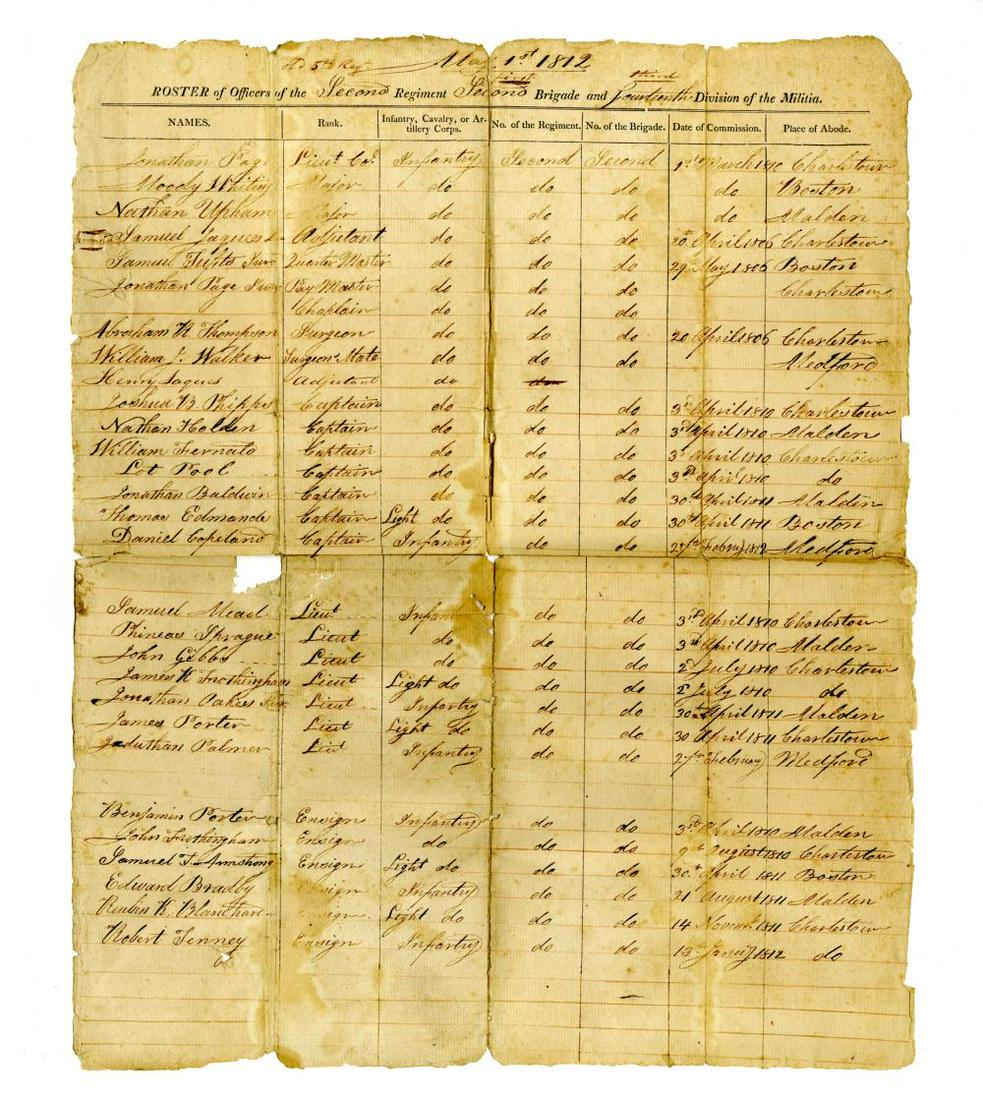 May 1st 1812
old 5th Reg
third
ROSTER of Officers of the Second Regiment Second Brigade and fourteenth Division of the Militia.
NAMES. Rank. Infantry, Cavalry, or Artillery Corps. No. of the Regiment. No. of the Brigade. Date of Commission. Place of Abode.
Jonathan Page Lieut Col Infantry Second Second 1st March 1810 Charlestown
Moody Whiting Major do do do do Boston
Nathan Upham Major do do do do Malden
Samuel Jaques Adjutant do do do 20 April 1806 Charlestown
Samuel Tufts Junr Quarter Master do do do 29 May 1806 Boston
Jonathan Page Junr Pay Master do do do Charlestown
Chaplain do do do
Abraham R Thompson Surgeon do do do 20 April 1806 Charlestown
William J. Walker Surgeon Mate do do do Medford
Henry Jaques Adjutant do do
Joshua B Phipps Captain do do do 3d April 1810 Charlestown
Nathan Holden Captain do do do 3d April 1810 Malden
William Fernald Captain do do do 3d April 1810 Charlestown
Lot Pool Captain do do do 3d April 1810 do
Jonathan Baldwin Captain do do do 30th April 1811 Malden
Thomas Edmands Captain Light do do do 30th April 1811 Boston
Daniel Copeland Captain Infantry do do 27th Febru 1812 Medford
Samuel Mead Lieut Infantry do do 3d April 1810 Charlestown
Phineas Sprague Lieut do do do 3d April 1810 Malden
John Gibbs Lieut do do do 2 July 1810 Charlestown
James K Frothingham Lieut Light do do do 2 July 1810 do
Jonathan Oakes Jur Lieut Infantry do do 30th April 1811 Malden
James Porter Lieut Light do do do 30 April 1811 Charlestown
Jeduthan Palmer Lieut Infantry do do 27th February Medford
Benjamin Porter Ensign Infantry do do 3d April 1810 Malden
John Frothingham Ensign do do do 9th August 1810 Charlestown
Samuel T. Armstrong Ensign Light do do do 30th April 1811 Boston
Edward Bradby Ensign Infantry do do 21 August 1811 Malden
Reubin K. Blanchard Ensign Light do do do 14 Novem 1811 Charlestown
Robert Tenney Ensign Infantry do do 13 Jany 1812 do